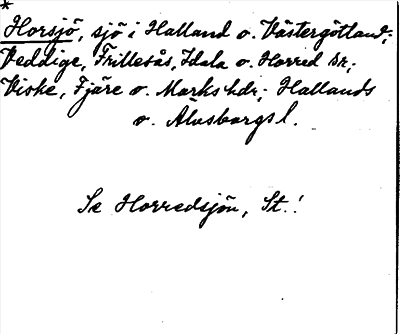 *
Horsjö, sjö i Halland o. Västergötland;
Veddige, Frillesås, Idala o. Horred sn;
Viske, Fjäre o. Marks hdr; Hallands
o. Älvsborgs l.
Se Horredsjön, St.!